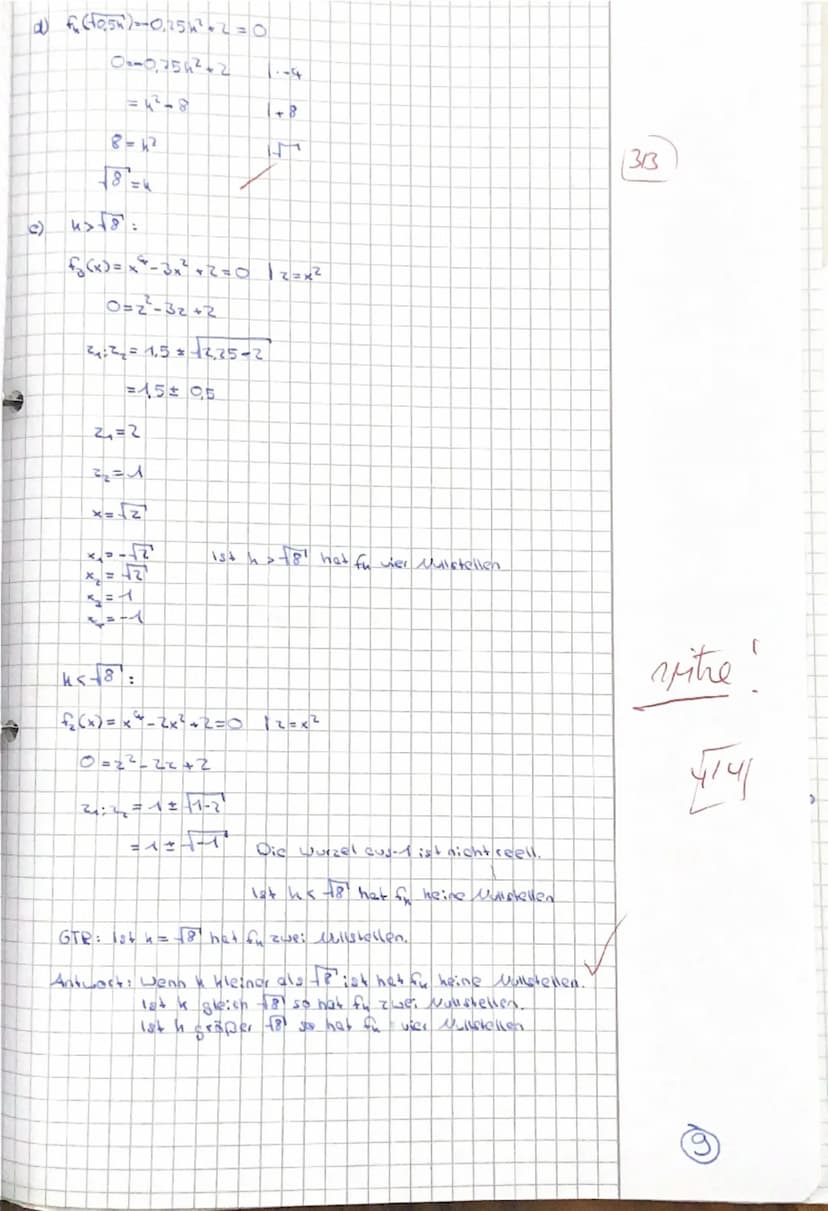 d) fₖ(√0,5k)=-0,25k²+2=0
0=-0,25k²+2 |·-4
=k²-8 |+8
8=k² |√
√8=k
3/3
e) k>√8:
f₃(x)=x⁴-3x²+2=0 |z=x²
0=z²-3z+2
z₁;z₂=1,5±√2,25-2
=1,5±0,5
z₁=2
z₂=1
x=√2
x₁=-√2 Ist k>√8 hat fₖ vier Nullstellen
x₂=√2
x₃=1
x₄=-1
spitze!
k<√8:
f₂(x)=x⁴-2x²+2=0 |z=x²
0=z²-2z+2
4/4
z₁;z₂=1±√1-2
=1±√-1 Die Wurzel aus -1 ist nicht reell.
Ist k<√8 hat fₖ keine Nullstellen
GTR: Ist k=√8 hat fₖ zwei Nullstellen.
Antwort: Wenn k kleiner als √8 ist hat fₖ keine Nullstellen.
Ist k gleich √8 so hat fₖ zwei Nullstellen.
Ist k größer √8 so hat fₖ vier Nullstellen
9